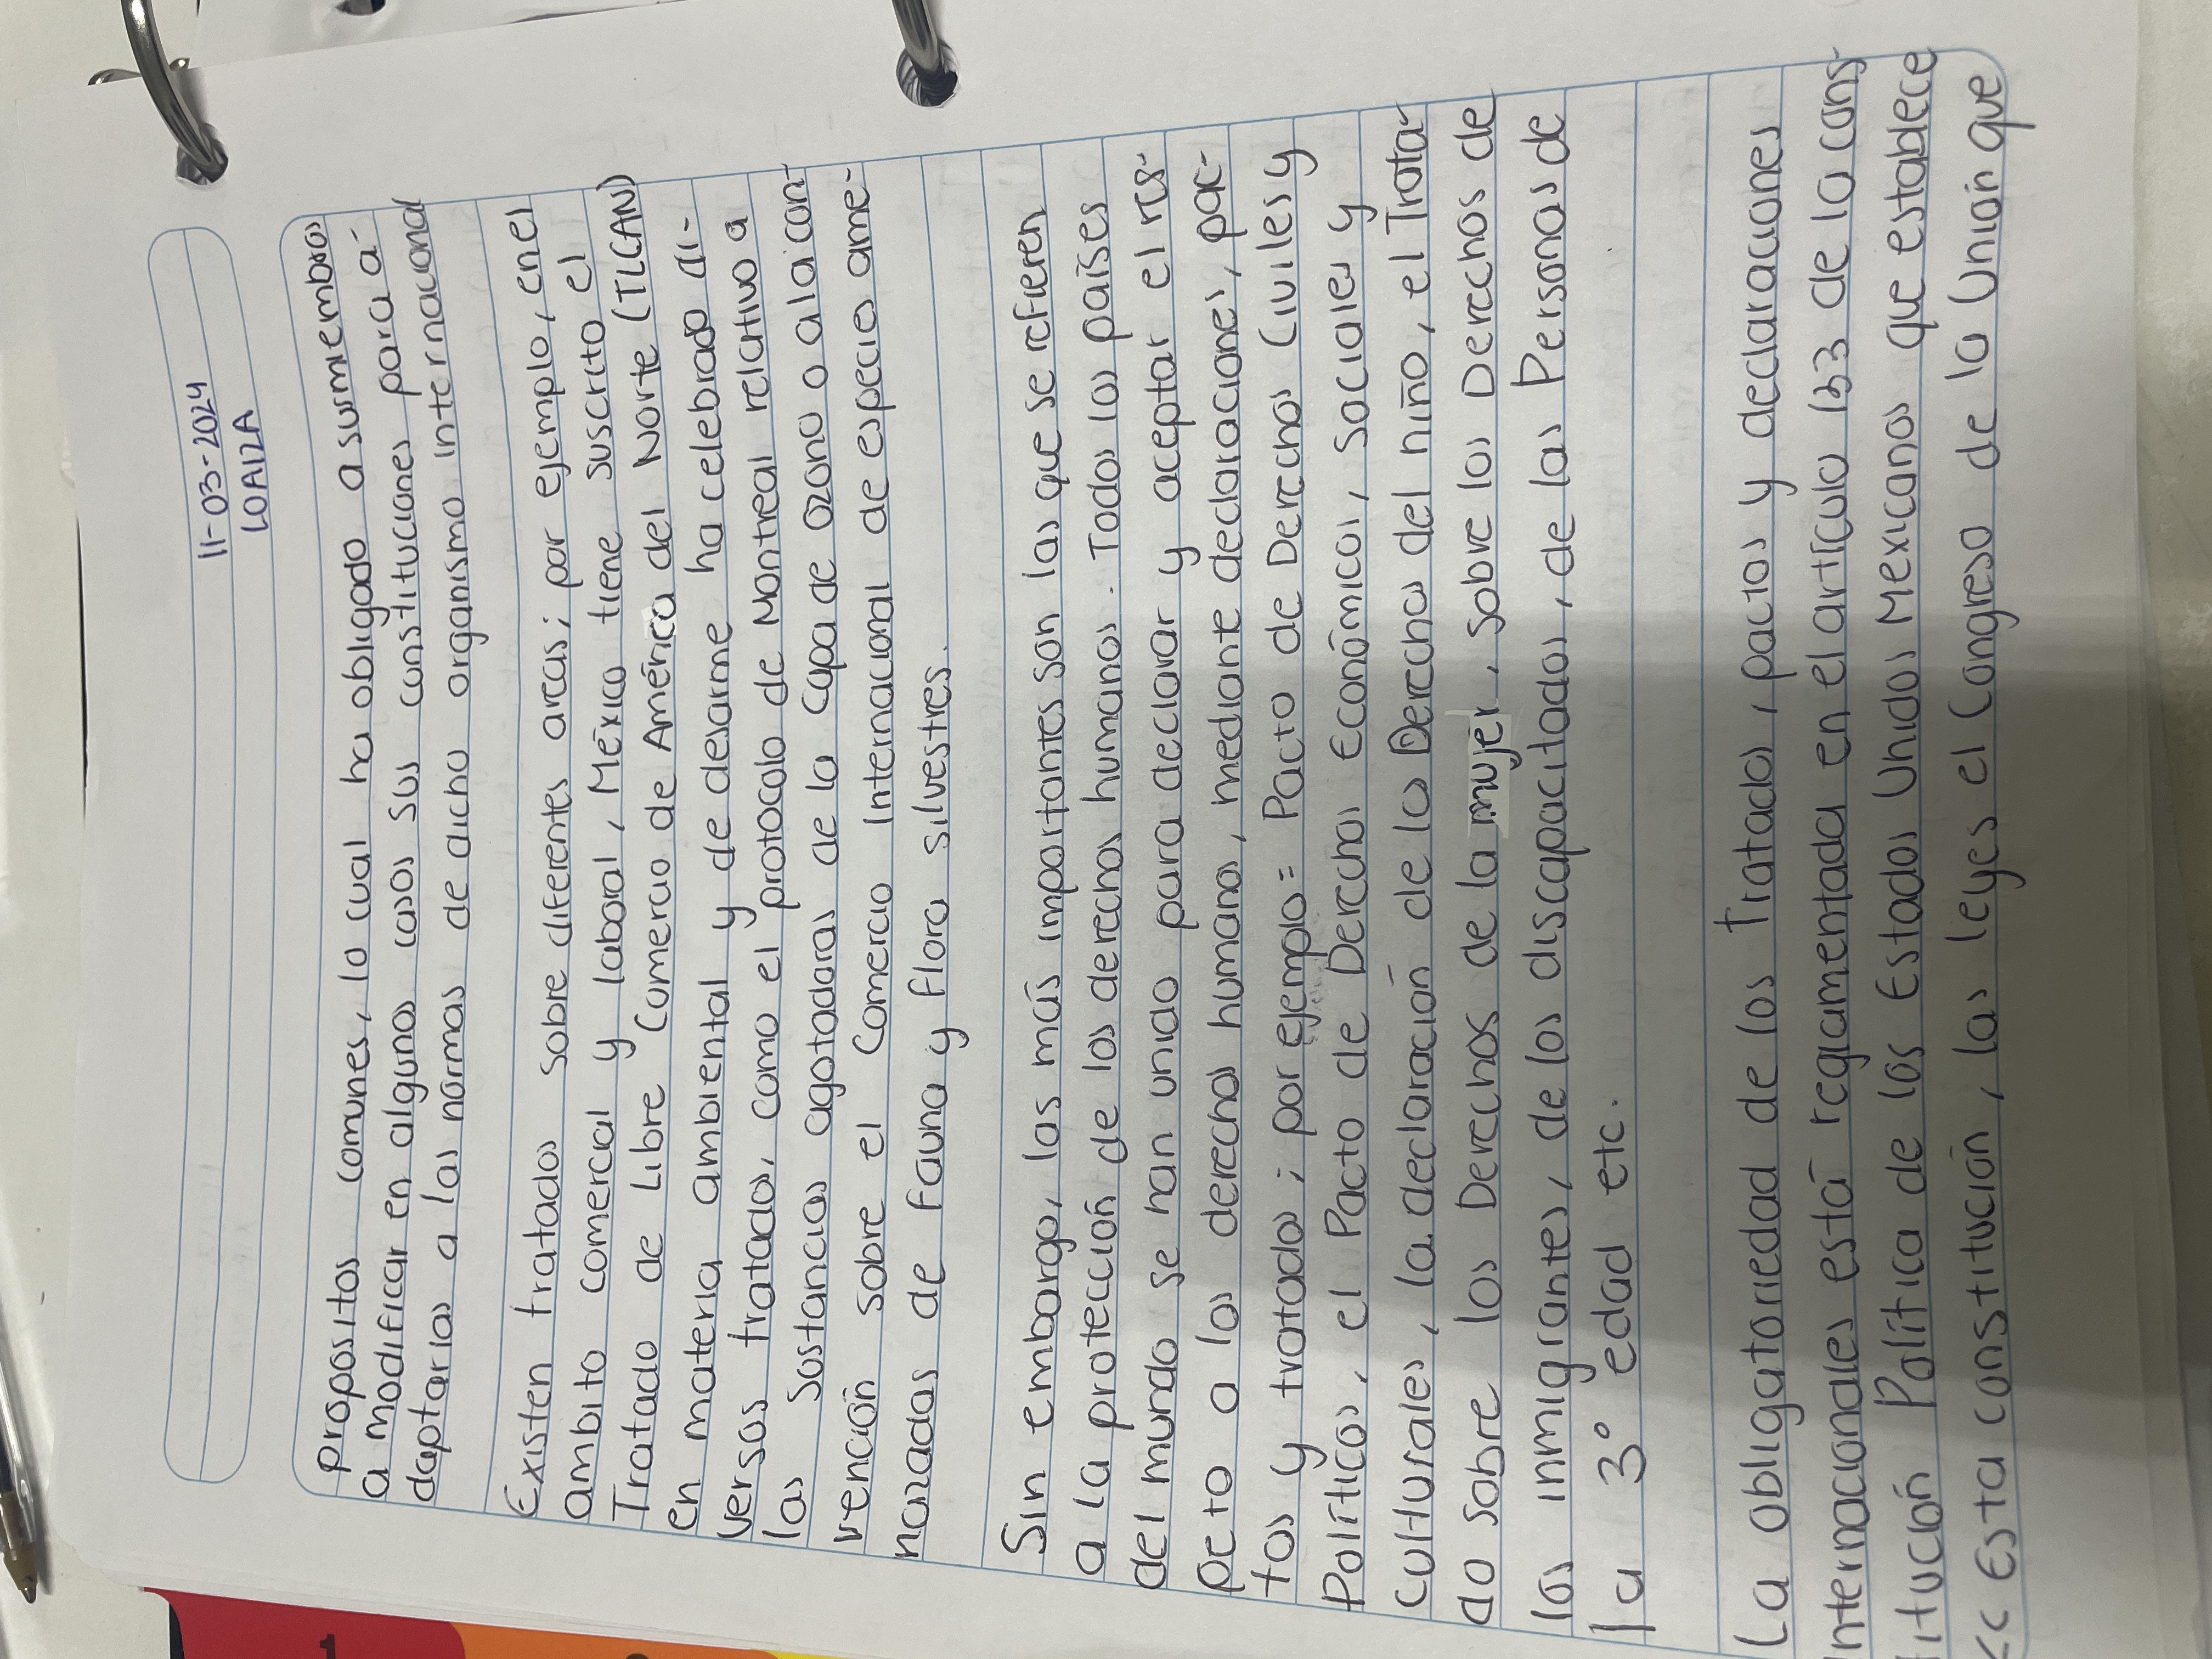 11-03-2024
LOAIZA
propositos comunes, lo cual ha obligado a susmiembros
a modificar en algunos casos sus constituciones para a-
daptarlas a las normas de dicho organismo internacional
Existen tratados sobre diferentes areas; por ejemplo, en el
ambito comercial y laboral, México tiene suscrito el
Tratado de Libre Comercio de América del Norte (TLCAN)
en materia ambiental y de desarme ha celebrado di-
versos tratados, como el protocolo de Montreal relativo a
las sustancias agotadoras de la capa de ozono o a la con-
vención sobre el Comercio Internacional de especies ame-
nazadas de Fauna y Flora silvestres.
Sin embargo, las más importantes son las que se refieren
a la protección de los derechos humanos. Todos los países
del mundo se han unido para declarar y aceptar el res-
pecto a los derechos humanos, mediante declaraciones, pac-
tos y tratados; por ejemplo= Pacto de Derechos Civiles y
Políticos, el Pacto de Derechos Económicos, sociales y
culturales, la declaración de los Derechos del niño, el Trata-
do sobre los Derechos de la mujer, sobre los Derechos de
los inmigrantes, de los discapacitados, de las Personas de
la 3° edad etc.
La obligatoriedad de los Tratados, pactos y declaraciones
Internacionales está reglamentada en el artículo 133 de la cons-
titución Política de los Estados Unidos Mexicanos que establece
<< Esta constitución, las leyes el Congreso de la Unión que